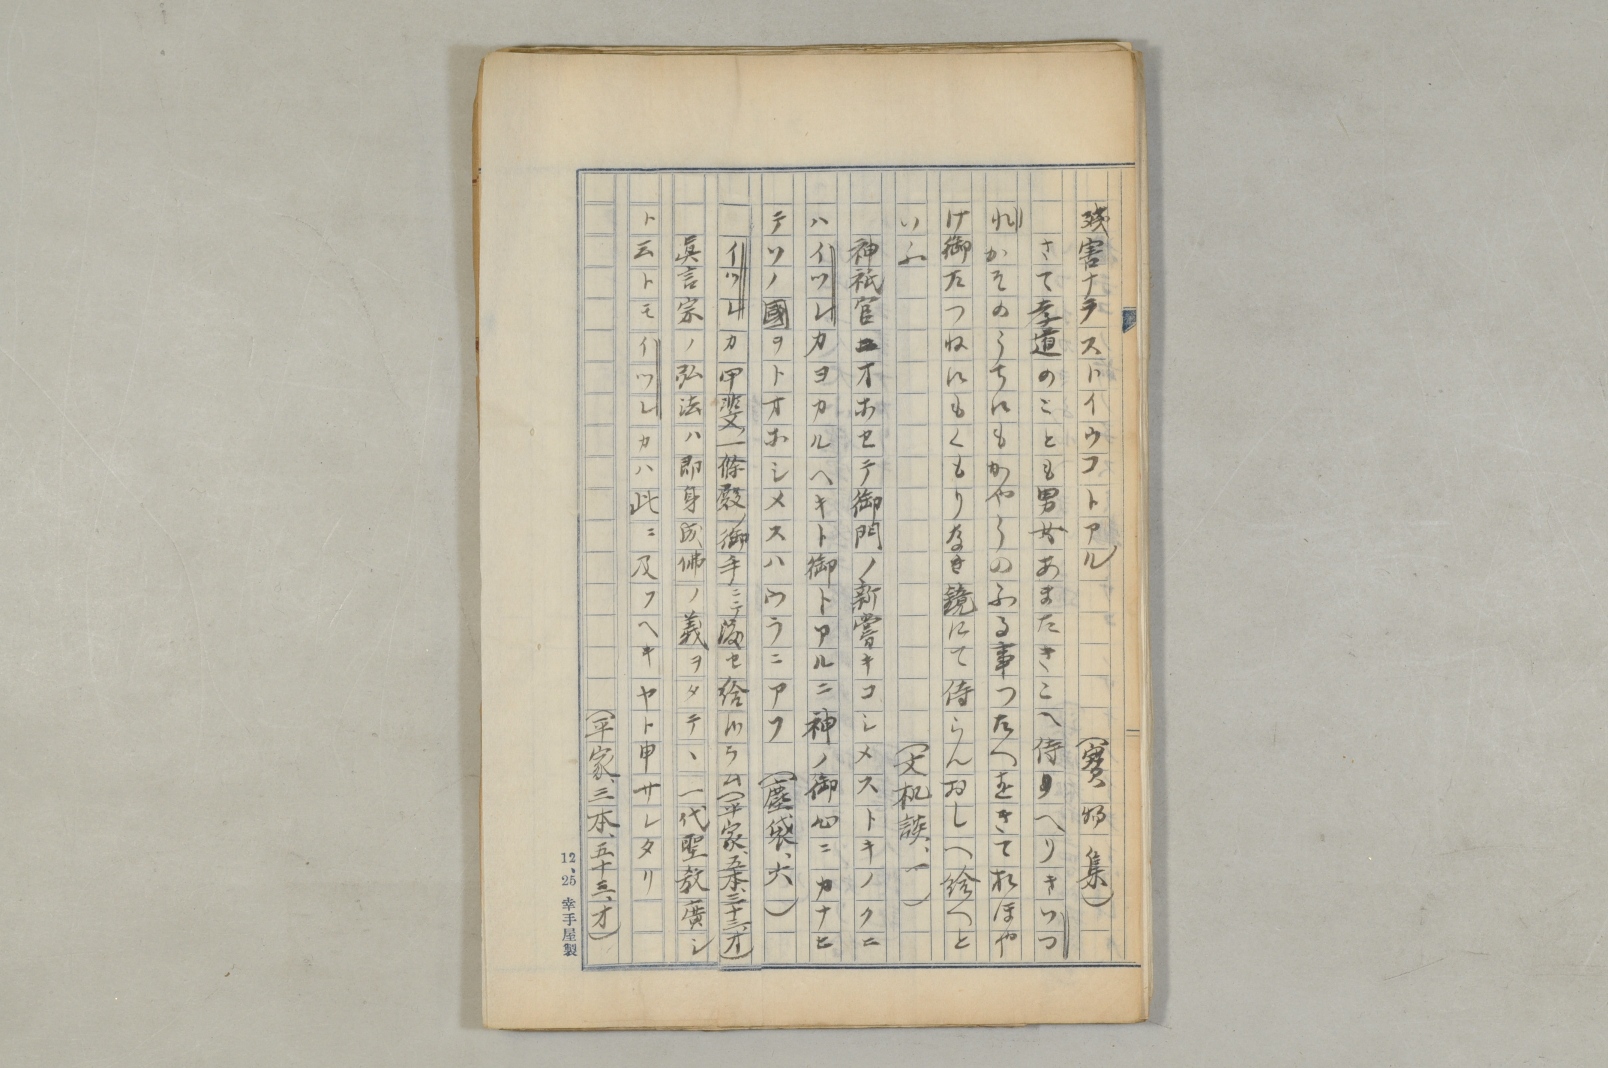 残害ナラストイウコトアル (寳物集)
さて孝道のことも男女あまたきこへ侍りへりきいつ
れかそのうちにもかやうのふる事つたへをきておほや
け御たつねにもくもりなき鏡にて侍らんおしへ給へと
いふ (文机談、一)
神祇官ニオホセテ御門ノ新嘗キコシメストキノクニ
ハイツレカヨカルヘキト御トアルニ神ノ御心ニカナヒ
テソノ國ヲトオホシメスハウラニアフ (塵袋、六)
イツレカ甲斐一條殿御手ニテ渡セ給ハラム(平家、五本、三十三、オ)
眞言宗ノ弘法ハ即身成佛ノ義ヲタテ、一代聖教廣シ
ト云トモイツレカハ此ニ及フヘキヤト申サレタリ
(平家、三本、五十三、オ)
12、25 幸手屋製